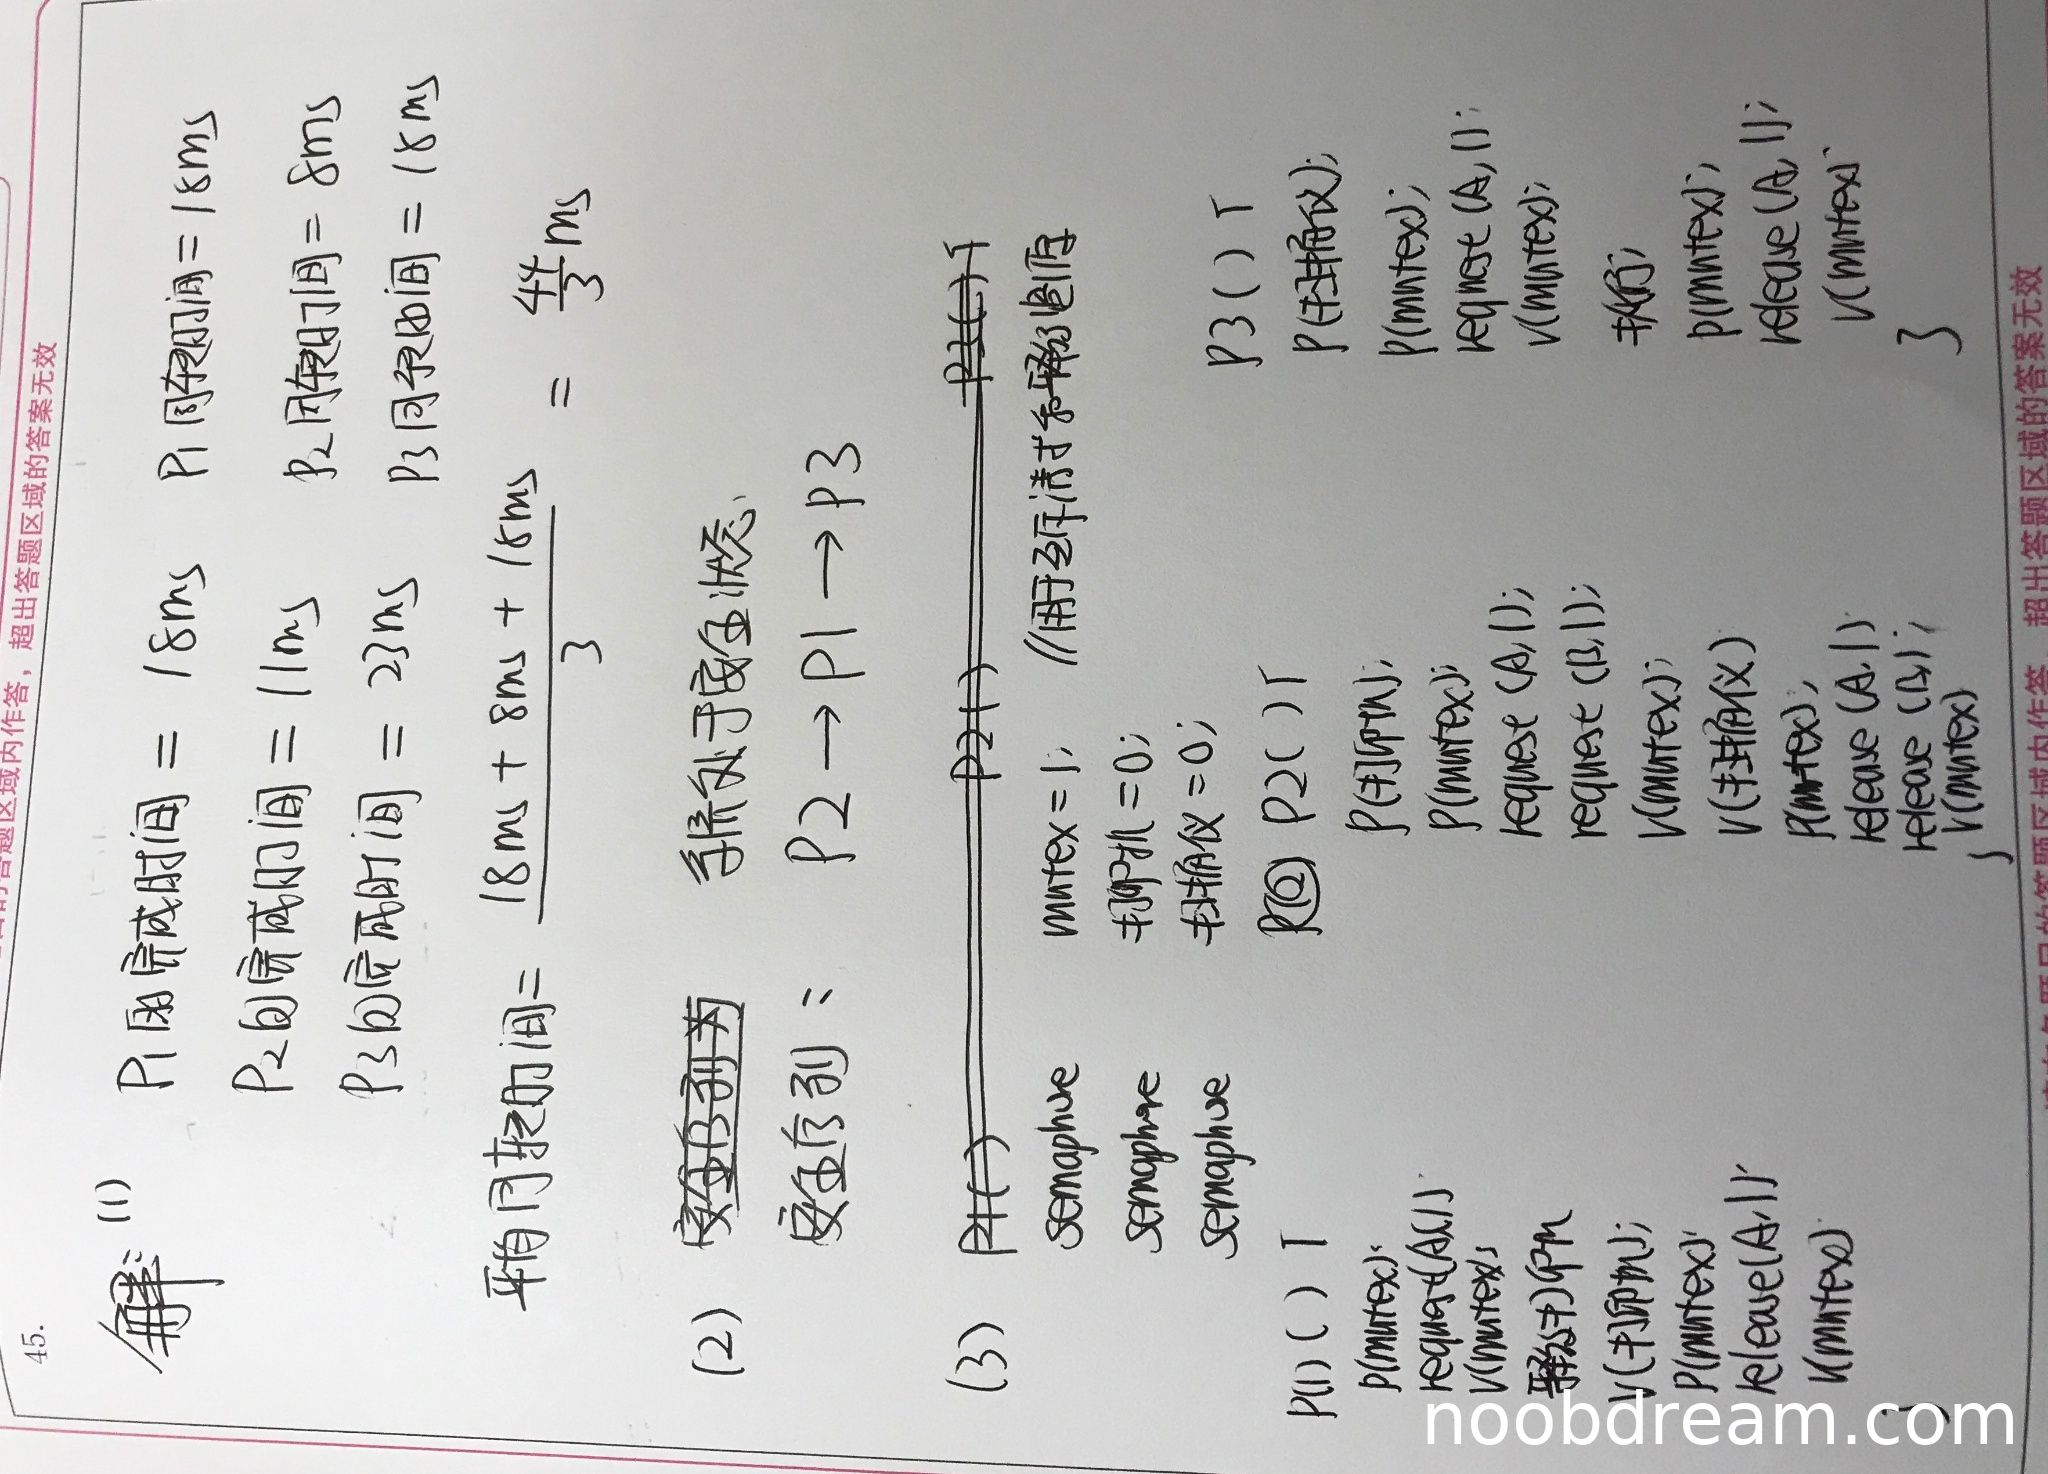 45.
解: (1)
P1的完成时间 = 18ms P1周转时间 = 18ms
P2的完成时间 = 11ms P2周转时间 = 8ms
P3的完成时间 = 23ms P3周转时间 = 18ms
平均周转时间 = (18ms + 8ms + 18ms) / 3 = 44/3 ms
(2) 安全序列为 系统处于安全状态.
安全序列: P2 → P1 → P3
(3) P1() P2() P3()
semaphore mutex = 1; //用于互斥请求和释放程序
semaphore 打印机 = 0;
semaphore 扫描仪 = 0;
P(1)() {
P(mutex);
request(A,1);
V(mutex);
释放打印机
V(打印机);
P(mutex);
release(A,1);
V(mutex)
}
P2() {
P(打印机);
P(mutex);
request(A,1);
request(B,1);
V(mutex);
V(扫描仪)
P(mutex);
release(A,1)
release(B,1);
V(mutex)
}
P3() {
P(扫描仪);
P(mutex);
request(A,1);
V(mutex);
执行;
P(mutex);
release(A,1);
V(mutex)
}
答题区域内作答，超出答题区域的答案无效
请在各题目的答题区域内作答，超出答题区域的答案无效
noobdream.com